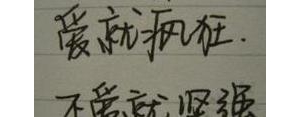 爱就疯狂.
不爱就坚强